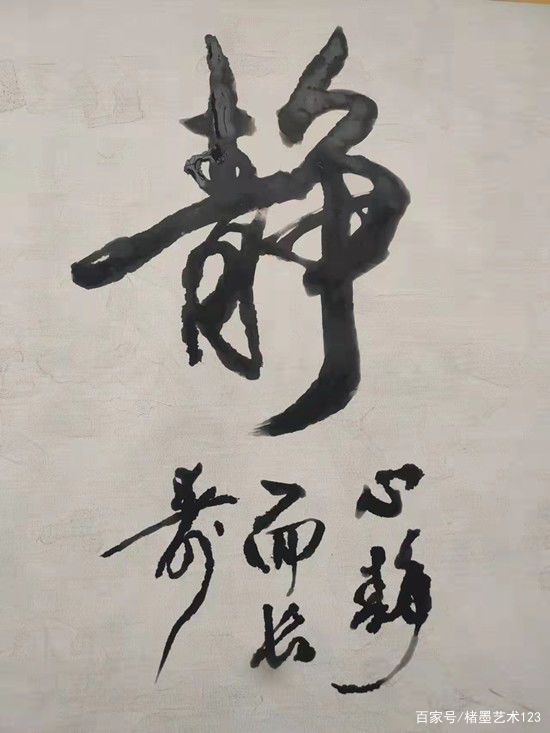 静
心静
而长
寿
百家号/楮墨艺术123